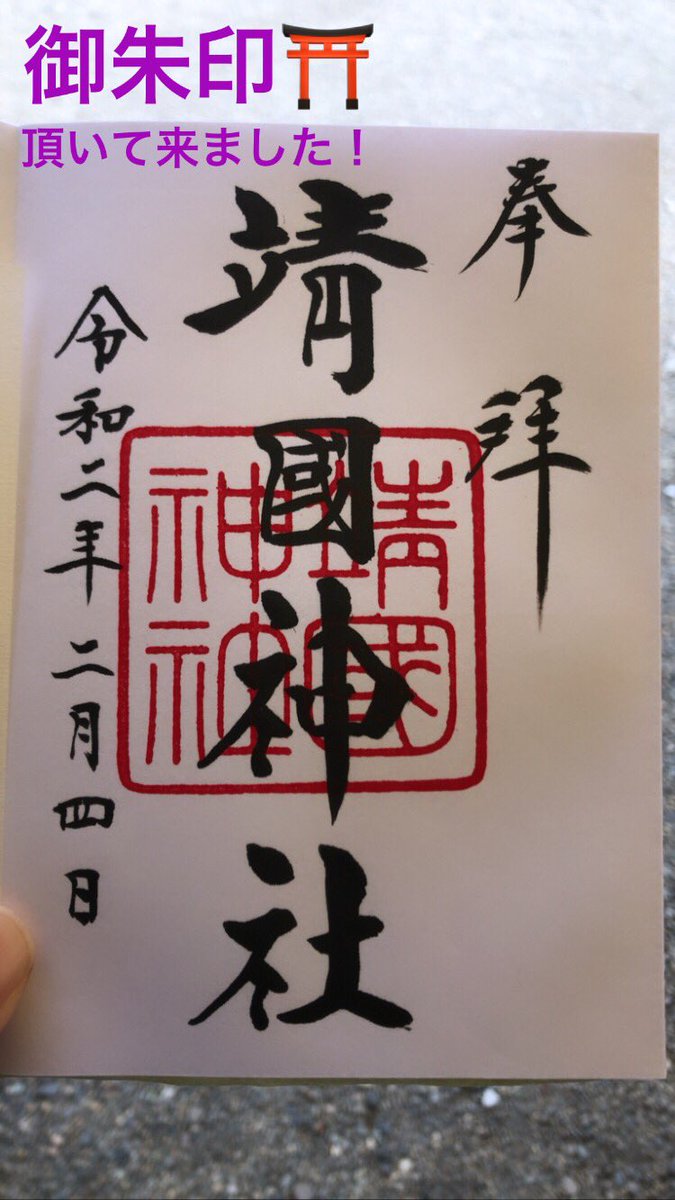 御朱印⛩
頂いて来ました！
奉拝
靖國神社
令和二年二月四日
靖國
神社